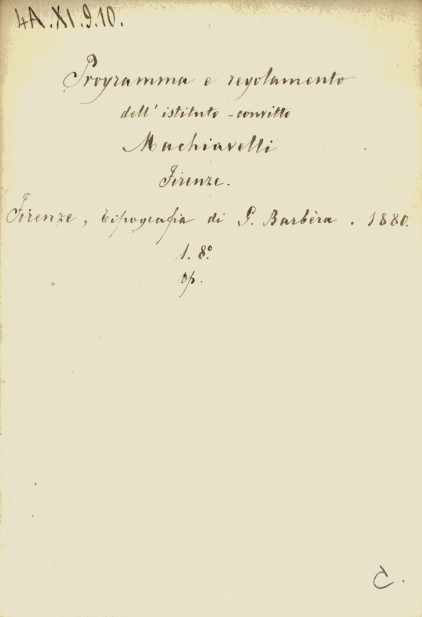 4A.XI.9.10.
Programma e regolamento
dell' istituto - convitto
Machiavelli
Firenze.
Firenze, tipografia di G. Barbèra. 1880.
1. 8.º
op.
C.